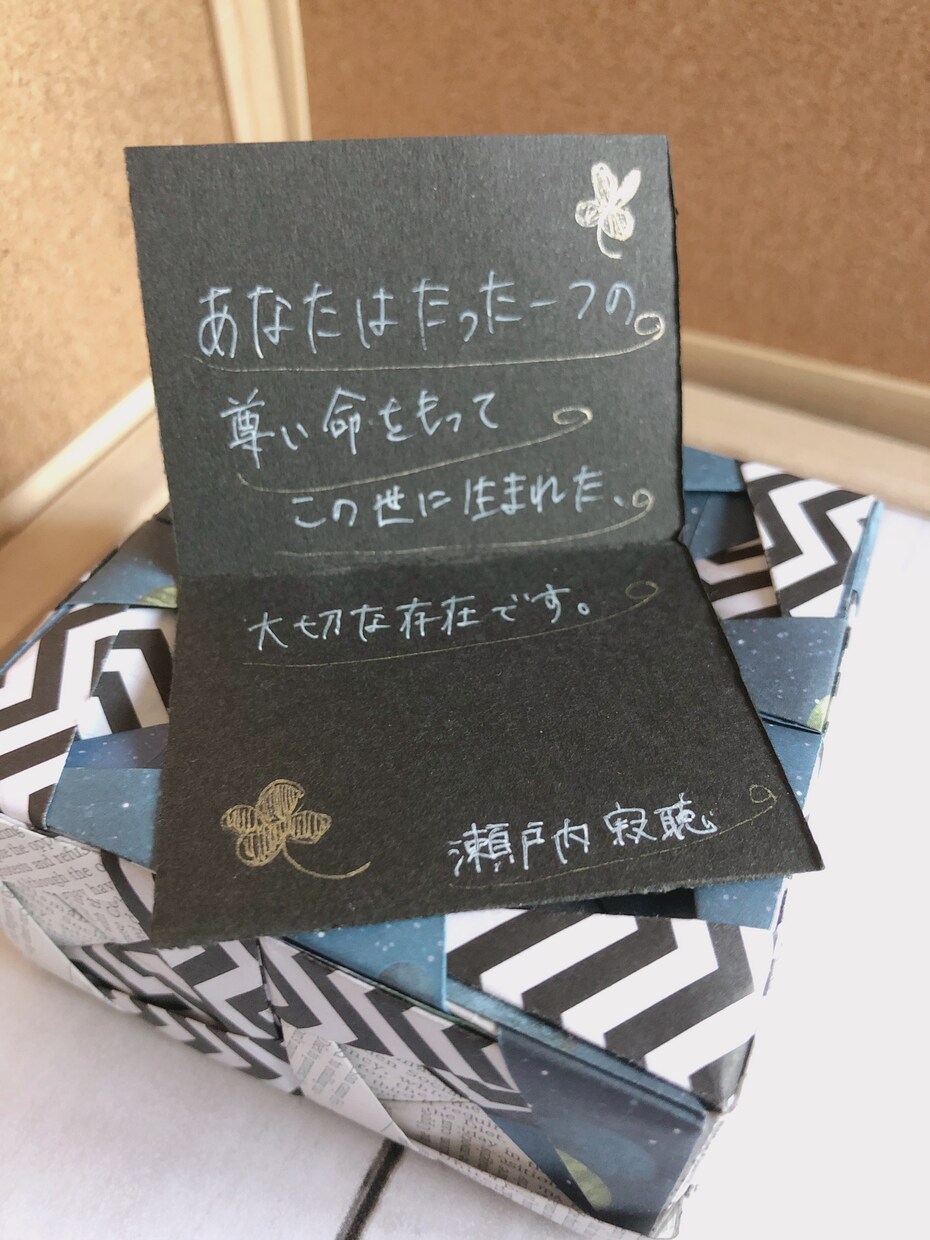 あなたはたった一つの
尊い命をもって
この世に生まれた、
大切な存在です。
瀬戸内寂聴